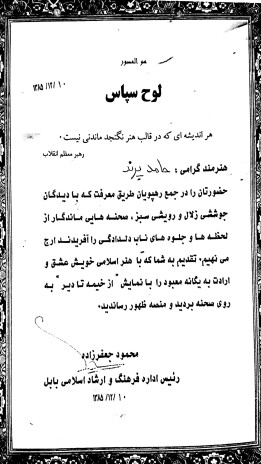 هو المصور
۱۳۸۵/۱۲/۱۰
لوح سپاس
هر اندیشه ای که در قالب هنر نگنجد ماندنی نیست
رهبر معظم انقلاب
هنرمند گرامی : حامد پرند
حضورتان را در جمع رهپویان طریق معرفت که با دیدگان
جوششی زلال و رویشی سبز، صحنه هایی ماندگار از
لحظه ها و جلوه های ناب دلدادگی را آفریدند ارج
می نهیم. تقدیم به شما که با هنر اسلامی خویش عشق و
ارادت به یگانه معبود را با نمایش "از خیمه تا دیر" به
روی صحنه بردید و منصه ظهور رساندید.
محمود جعفرزاده
رئیس اداره فرهنگ و ارشاد اسلامی بابل
۱۳۸۵/۱۲/۱۰